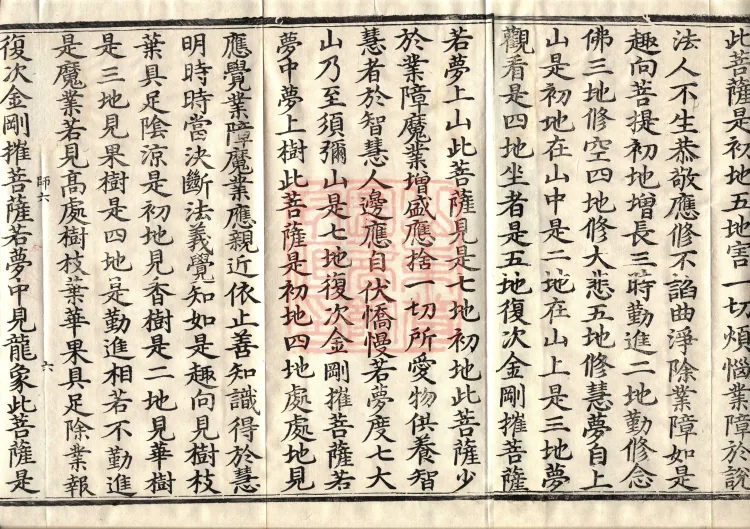 此菩薩是初地五地害一切煩惱業障於說
法人不生恭敬應修不諂曲淨除業障如是
趣向菩提初地增長三時勤進二地勤修念
佛三地修空四地修大悲五地修慧夢自上
山是初地在山中是二地在山上是三地夢
觀看是四地坐者是五地復次金剛摧菩薩
若夢上山此菩薩見是七地初地此菩薩少
於業障魔業增盛應捨一切所愛物供養智
慧者於智慧人邊應自伏憍慢若夢度七大
山乃至須彌山是七地復次金剛摧菩薩若
夢中夢上樹此菩薩是初地四地處處地見
應覺業障魔業應親近依止善知識得於慧
明時時當決斷法義覺知如是趣向見樹枝
葉具足陰涼是初地見香樹是二地見華樹
是三地見果樹是四地是勤進相若不勤進
是魔業若見高處樹枝葉華果具足除業報
師六
六
復次金剛摧菩薩若夢中見龍象此菩薩是